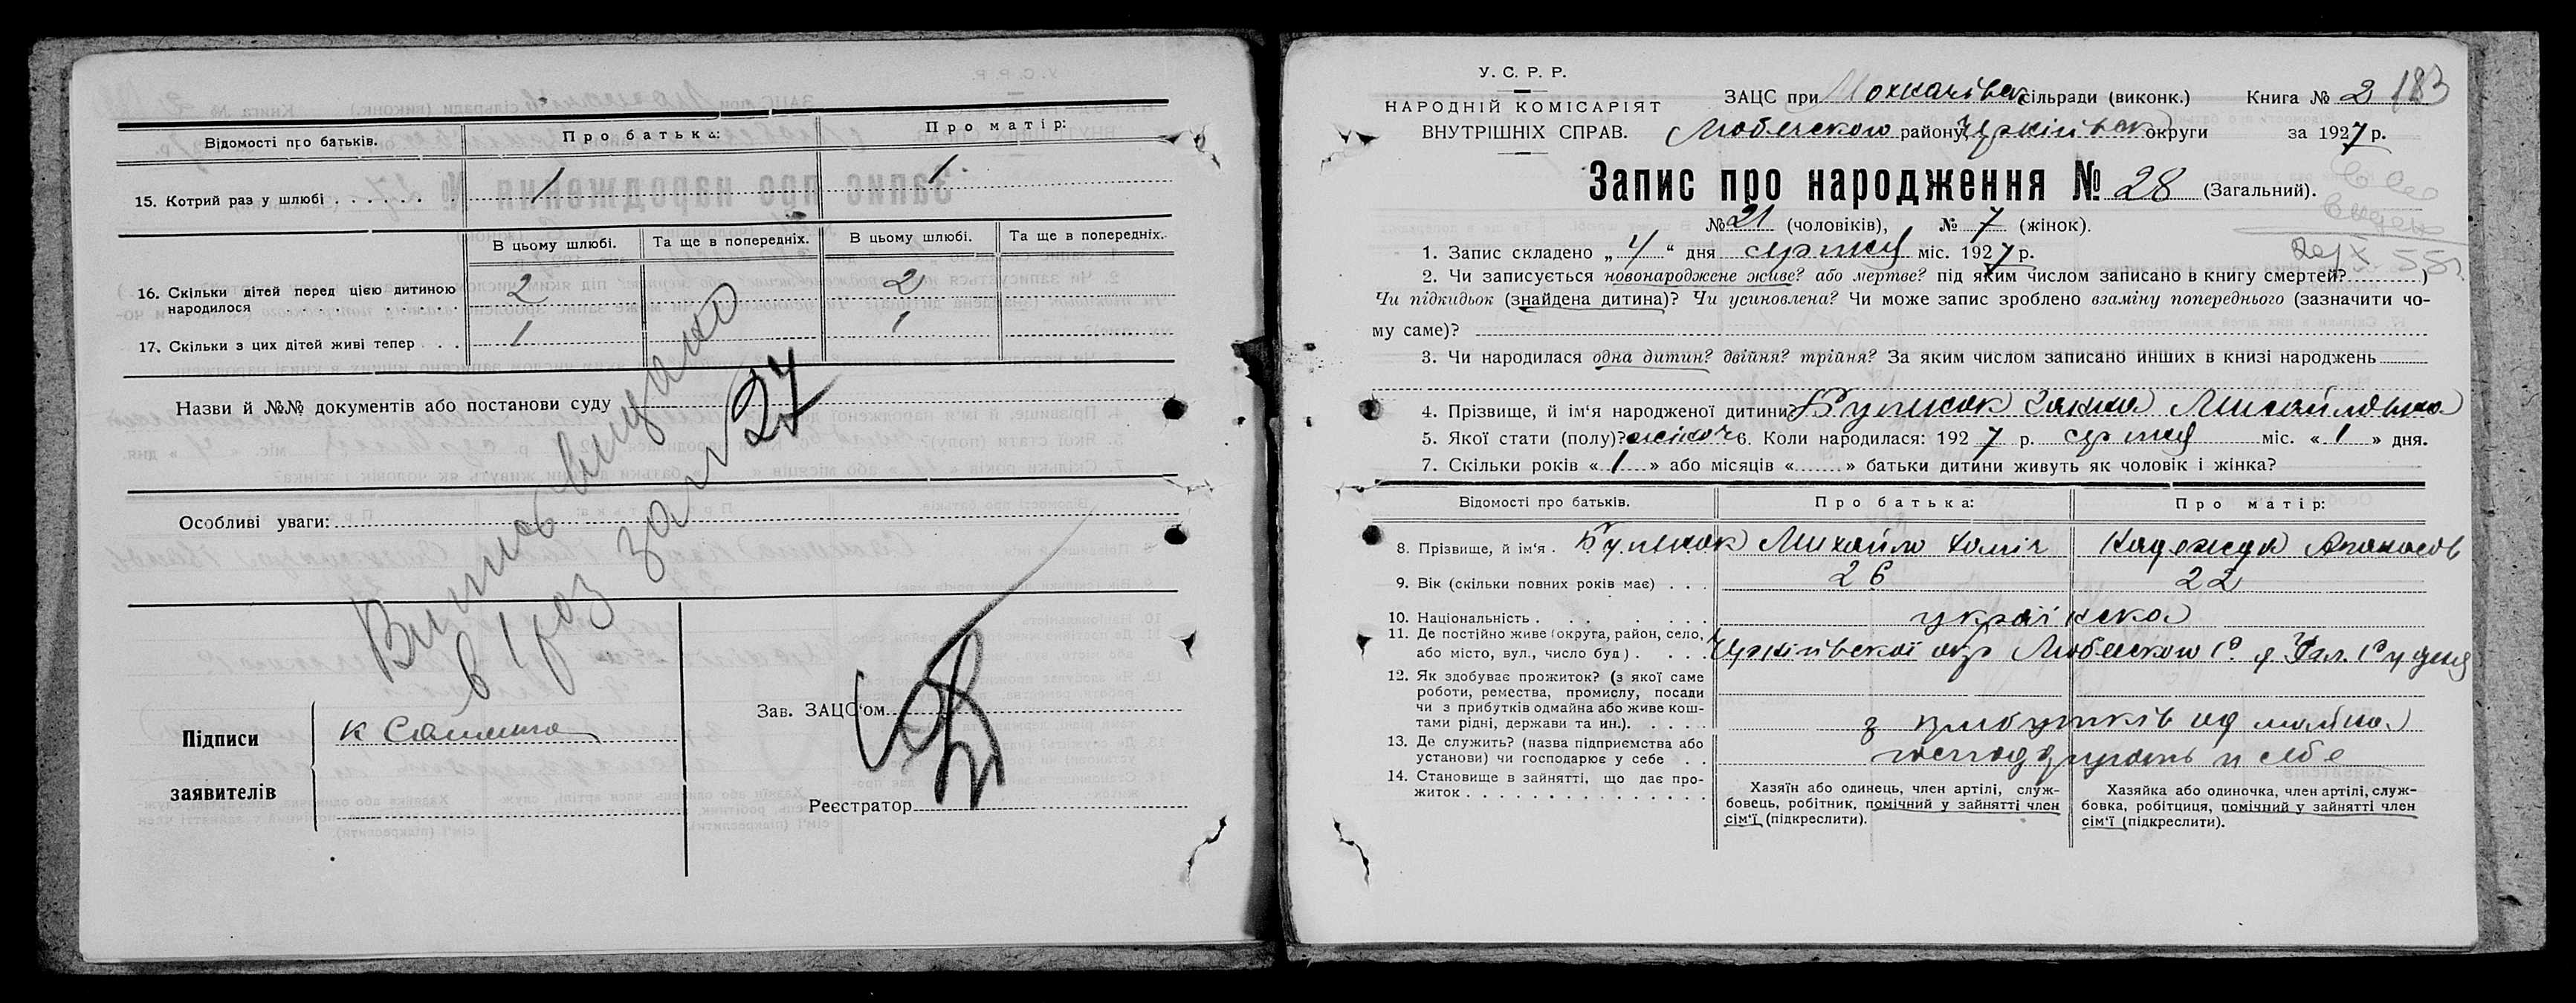 Відомості про батьків.
Про батька:
Про матір:
15. Котрий раз у шлюбі
1
1.
В цьому шлюбі.
Та ще в попередніх.
В цьому шлюбі.
Та ще в попередніх.
16. Скільки дітей перед цією дитиною
народилося
2
2
17. Скільки з цих дітей живі тепер
1
1
Назви й №№ документів або постанови суду
Особливі уваги:
в
за № 27
Підписи
заявителів
Зав. ЗАЦС'ом
Реєстратор
У. С. Р. Р.
НАРОДНІЙ КОМІСАРІЯТ
ВНУТРІШНІХ СПРАВ.
ЗАЦС при сільради (виконк.)
Книга № 2 183
Любецкого району округи
за 1927 р.
Запис про народження № 28 (Загальний).
№ 21 (чоловіків), № 7 (жінок).
1. Запис складено „ 4 “ дня серпня міс. 1927 р.
2. Чи записується новонароджене живе? або мертве? під яким числом записано в книгу смертей? )
Чи підкидьок (знайдена дитина)? Чи усиновлена? Чи може запис зроблено взаміну попереднього (зазначити чо-
му саме)?
3. Чи народилася одна дитин? двійня? трійня? За яким числом записано инших в книзі народжень
4. Прізвище, й ім'я народженої дитини Михайловна
5. Якої стати (полу)? жіноч 6. Коли народилася: 1927 р. серпня міс. « 1 » дня.
7. Скільки років « 1 » або місяців « » батьки дитини живуть як чоловік і жінка?
Відомості про батьків.
Про батька:
Про матір:
8. Прізвище, й ім'я .
Михайло
Надежда
9. Вік (скільки повних років має)
26
22
10. Національність
українська
11. Де постійно живе (округа, район, село,
або місто, вул., число буд)
окр Любецкого
12. Як здобуває прожиток? (з якої саме
роботи, ремества, промислу, посади
чи з прибутків одмайна або живе кош-
тами рідні, держави та ин.).
з прибутків од майна
13. Де служить? (назва підприємства або
установи) чи господарює у себе
14. Становище в зайнятті, що дає про-
житок
Хазяїн або одинець, член артілі, служ-
бовець, робітник, помічний у зайнятті член
сім'ї (підкреслити).
Хазяйка або одиночка, член артілі, служ-
бовка, робітциця, помічний у зайнятті член
сім'ї (підкреслити).